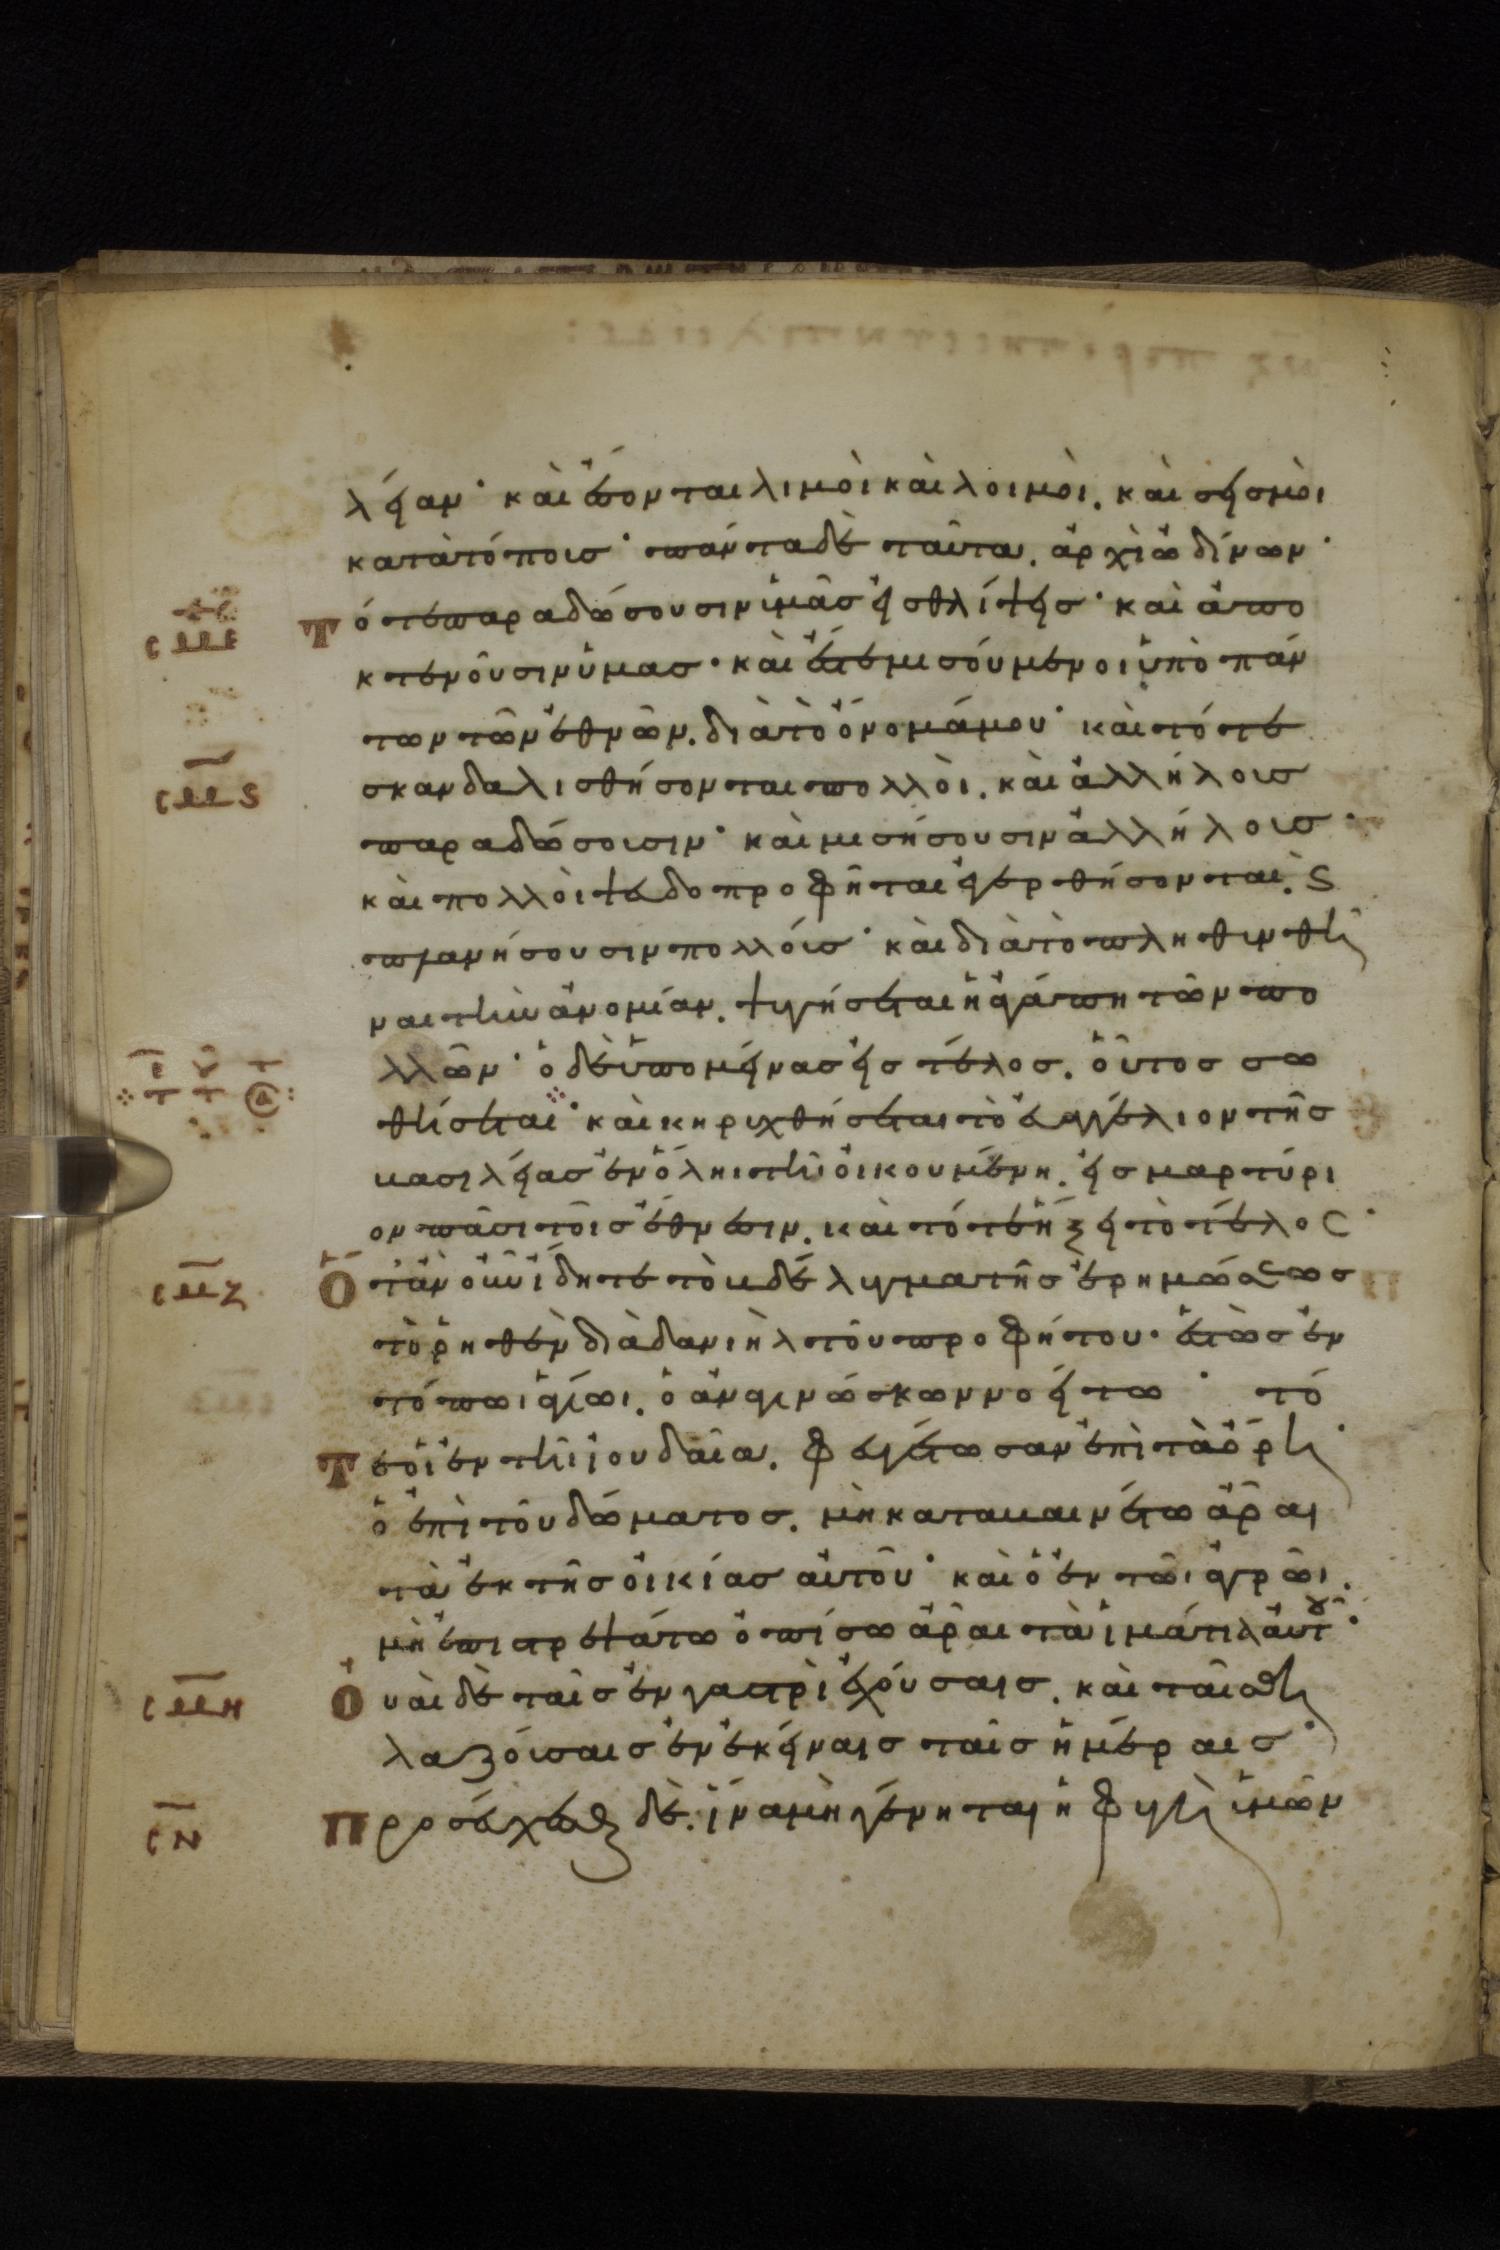 λείαν· καὶ ἔσονται λιμοὶ καὶ λοιμοὶ. καὶ σεισμοὶ
κατὰ τόποισ· πάντα δὲ ταῦτα. ἀρχὶ ὠδίνων·
Τότε παραδώσουσιν ἡμᾶσ εἰσ θλίψεισ· καὶ ἀπο
κτενοῦσιν ὕμασ· καὶ ἔσεσ μισούμενοι ὑπὸ πάν
των τῶν ἐθνῶν. διὰ τὸ ὄνομά μου· καὶ τότε
σκανδαλισθήσονται πολλὸι. καὶ ἀλλήλοισ
παραδώσοισιν· καὶ μισήσουσιν ἀλλήλοισ·
καὶ πολλὸι ψευδοπροφῆται ἐγερθήσονται. ϛ
πλανήσουσιν πολλόισ· καὶ διὰ τὸ πληθινθῆ
ναι τὴν ἀνομίαν. ψυγήσεται ἡ ἀγάπη τῶν πο
λλῶν· ὁ δὲ ὑπομείνασ εἰσ τέλοσ. οὗτοσ σω
θήσεται· καὶ κηρυχθήσεται τὸ ἐυαγγέλιον τῆσ
βασιλείασ ἐν ὅληι τῆ οἰκουμένη. εἰσ μαρτύρι
ον πᾶσι τοῖσ ἔθνεσιν. καὶ τότε ἥξει τὸ τέλοσ·
Ὅταν οὖν ἴδητε τὸ βδέλυγμα τῆσ ἐρημώσεωσ
τὸ ῥηθὲν διὰ δανιὴλ τοῦ προφήτου· ἑστὼσ ἐν
τόπωι ἁγίωι. ὁ ἀναγινώσκων νοείτω· τό
Τε οἱ ἐν τῆι ἰουδαῖα. φευγέτωσαν ἐπὶ τὰ ὄρη·
ὁ ἐπὶ τοῦ δώματοσ. μὴ καταβαινέτω ἆραι
τὰ ἐκ τῆσ οἰκίασ αὐτοῦ· καὶ ὁ ἐν τῶι ἀγρῶι.
μὴ ἐπιστρεψάτω ὀπίσω ἆραι τὰ ἱμάτια ἀυτοῦ·
Ὀυὰι δὲ ταῖσ ἐν γαστρὶ ἐχόυσαισ. καὶ ταῖσ θη
λαζόισαισ ἐν ἐκείναισ ταῖσ ἡμέραισ·
Προσέυχεσθε δὲ. ἵνα μὴ γένηται ἡ φυγὴ ἱμῶν